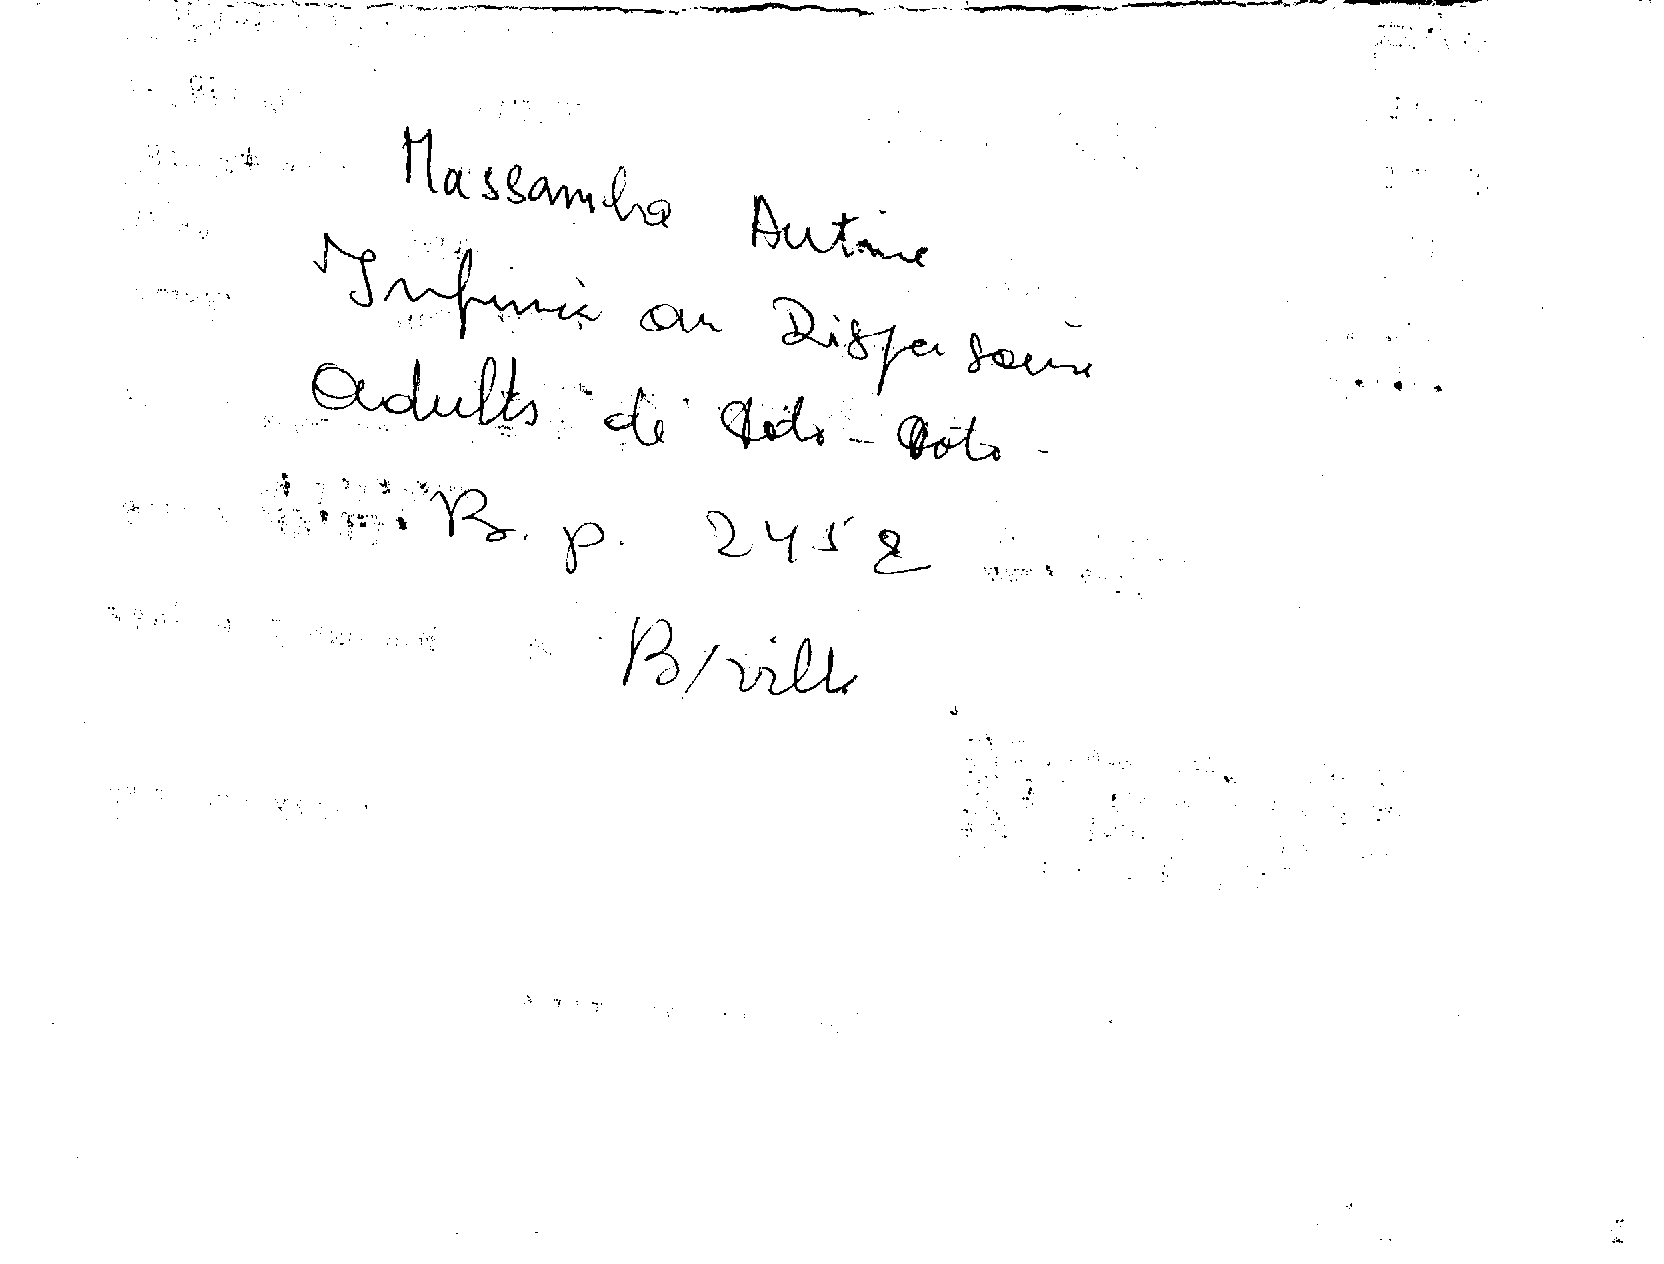 Massamba Antoine
Infirmier au Dispensaire
Adultes de Poto-Poto.
B.p. 2452
B/ville